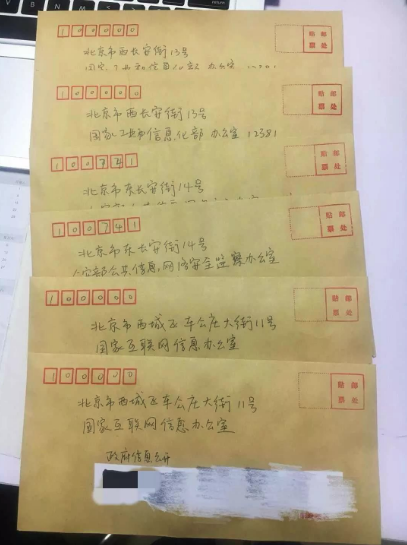 100000
贴邮
票处
北京市西长安街13号
100000
贴邮
票处
北京市西长安街13号
国家工业和信息化部 办公室 12381
100741
贴邮
票处
北京市东长安街14号
100741
贴邮
票处
北京市东长安街14号
公安部公共信息网络安全监察办公室
100000
贴邮
票处
北京市西城区车公庄大街11号
国家互联网信息办公室
100000
贴邮
票处
北京市西城区车公庄大街11号
国家互联网信息办公室
政府信息公开